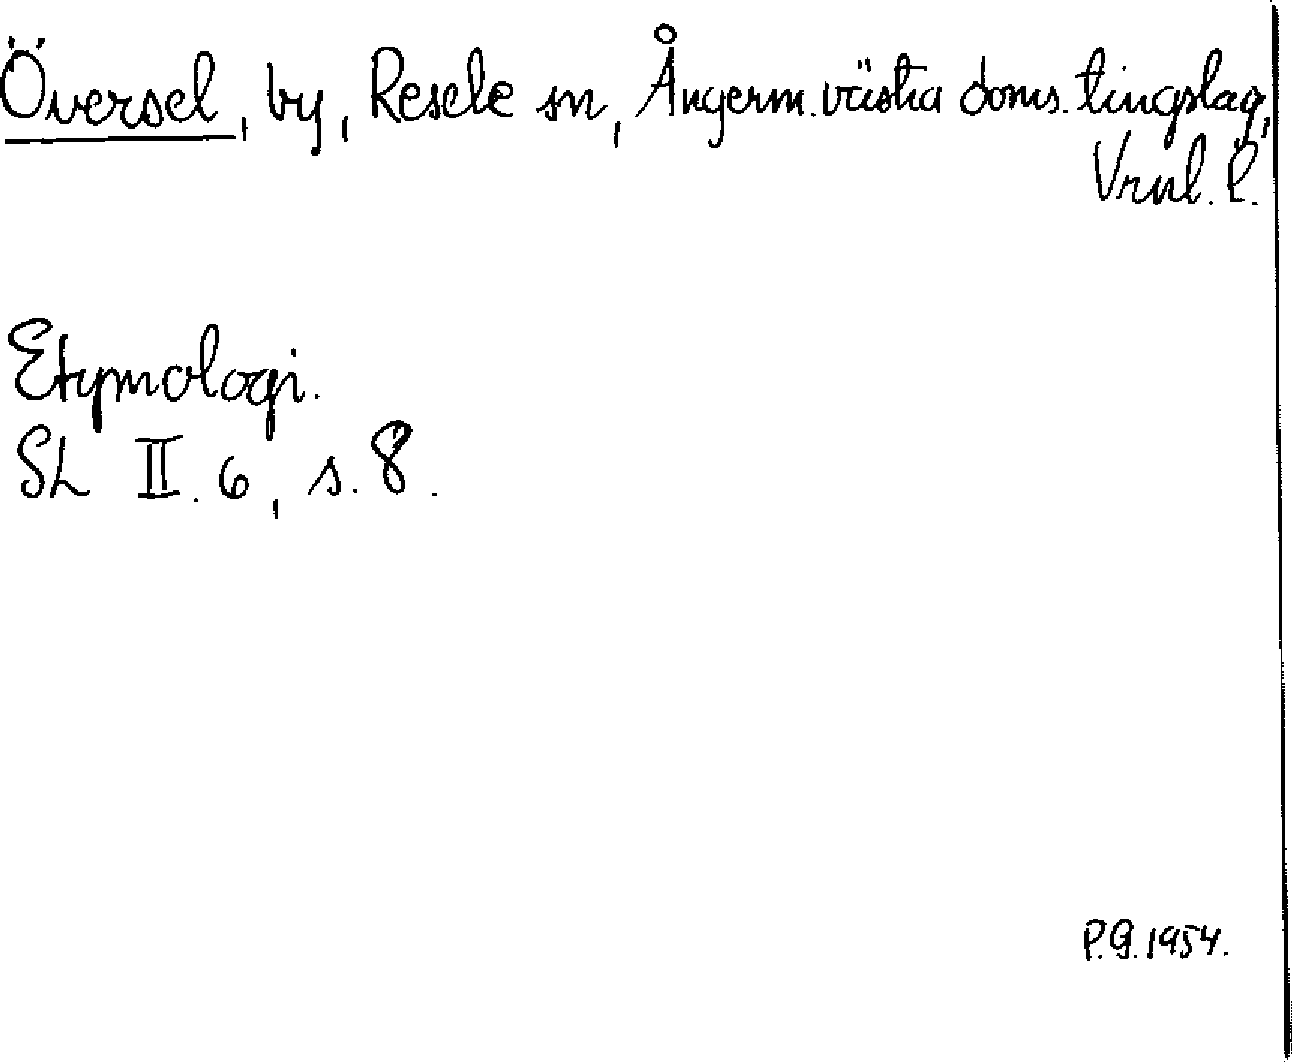 Översel, by, Resele sn, Ångerm. västra doms. tingslag,
Vrnl. l.
Etymologi.
SL II. 6, s. 8.
P.G. 1954.